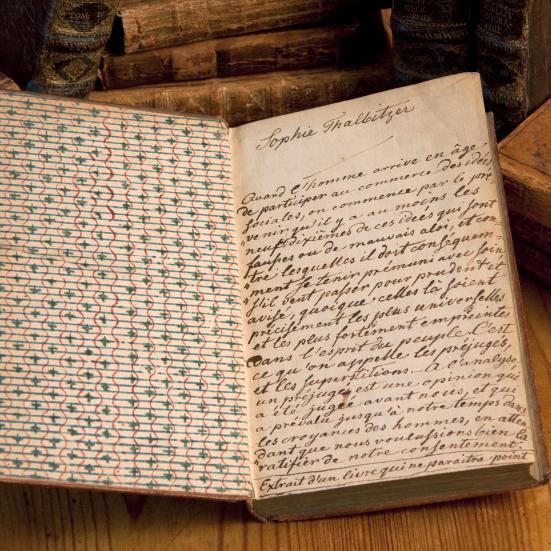 Sophie Thalbitzer
Quand l'homme arrive en âge
de participer au commerce des idées
sociales, on commence par le pré
venir qu'il y a au moins les
neuf dixièmes de ces idées qui sont
fausses ou de mauvais aloi, et con
tre lesquelles il doit conséquem
ment se tenir prémuni avec soin
s'il veut passer pour prudent et
avisé, quoique celles là soient
précisément les plus universelles
et les plus fortement empreintes
dans l'esprit du peuple. C'est
ce qu'on appelle les préjugés,
et les superstitions. A l'analyse
un préjugé est une opinion qui
a été jugée avant nous, et qui
a prévalu jusqu'à notre temps dans
les croyances des hommes, en atten
dant que nous voulussions bien la
ratifier de notre consentement:
Extrait d'un livre qui ne paraitra point